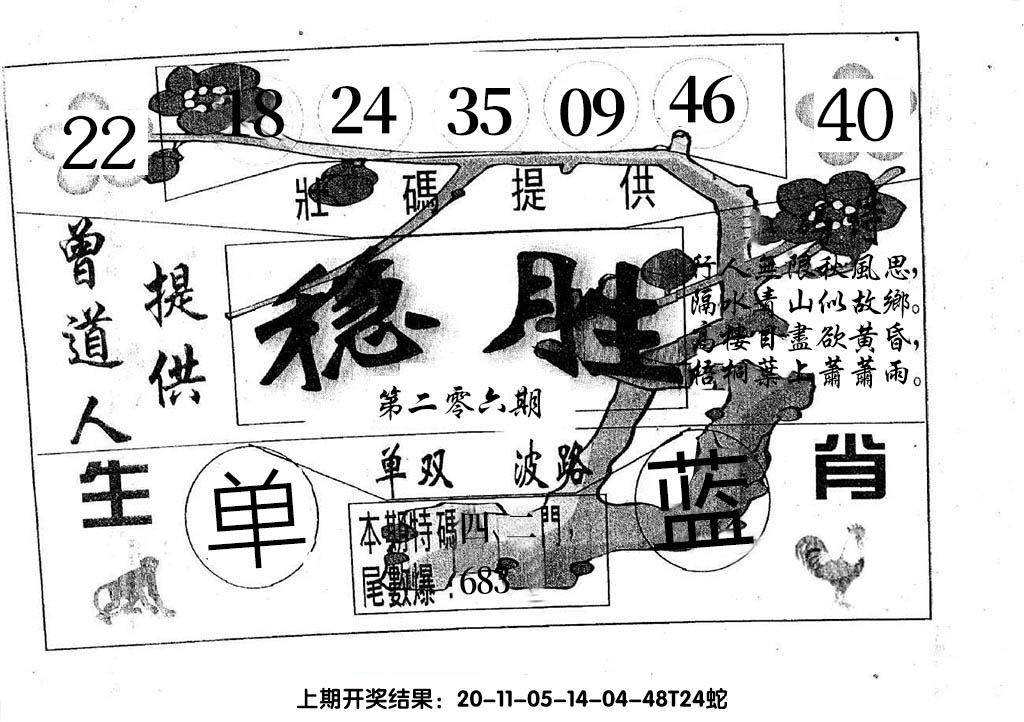 22 18 24 35 09 46 40
壯碼提供
曾道人
提供
稳胜
第二零六期
特
行人無限秋風思，
隔水青山似故鄉。
高樓目盡欲黃昏，
梧桐葉上蕭蕭雨。
单双 波路
生肖
单
蓝
本期特碼四、二門，
尾數爆：683
上期开奖结果：20-11-05-14-04-48T24蛇